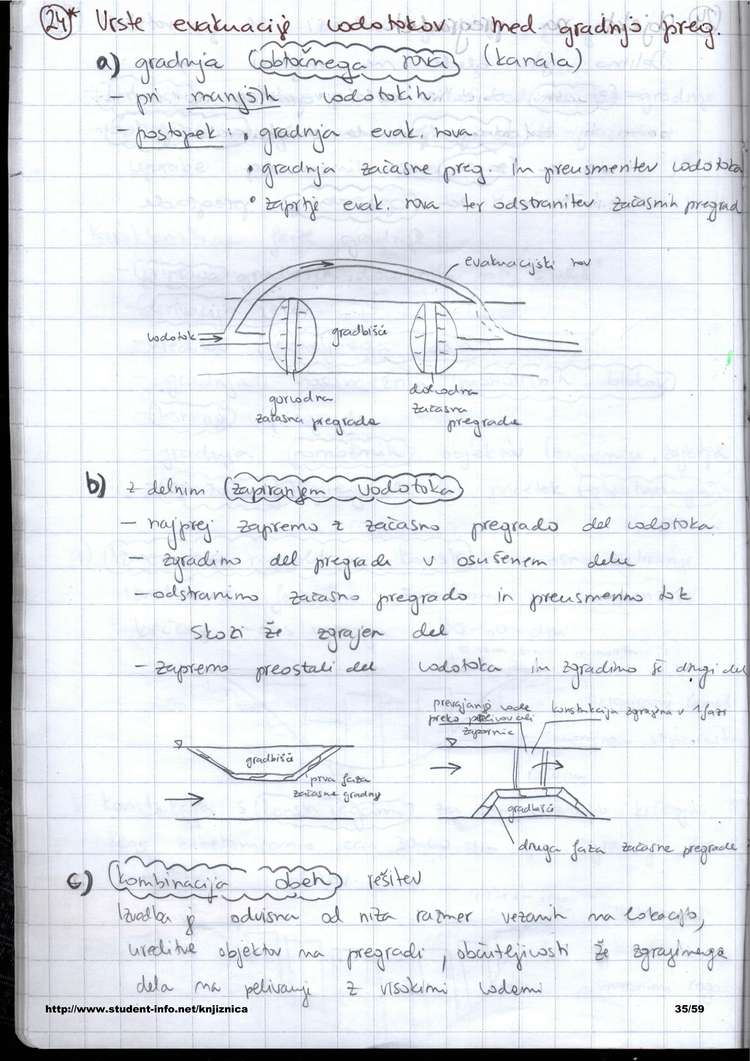 24* Vrste evakuacije vodotokov med gradnjo preg.
a) gradnja (obtočnega rova) (kanala)
- pri manjših vodotokih
- postopek: • gradnja evak. rova
• gradnja začasne preg. in preusmeritev vodotoka
• zaprtje evak. rova ter odstranitev začasnih pregrad
evakuacijski rov
vodotok
gradbišče
gorvodna
začasna pregrada
dolvodna
začasna
pregrada
b) z delnim (zapiranjem vodotoka)
- najprej zapremo z začasno pregrado del vodotoka
- zgradimo del pregrade v osušenem delu
- odstranimo začasno pregrado in preusmerimo tok
skozi že zgrajen del
- zapremo preostali del vodotoka in zgradimo še drugi del
prevajanje vode
preko
zapornic
konstrukcija zgrajena v 1 fazi
gradbišče
prva faza
začasne gradnje
gradbišče
druga faza začasne pregrade
c) (kombinacija obeh) rešitev
Izvedba je odvisna od niza razmer vezanih na lokacijo,
ureditve objektov na pregradi, občutljivosti že zgrajenega
dela na pelivanje z visokimi vodami
http://www.student-info.net/knjiznica
35/59